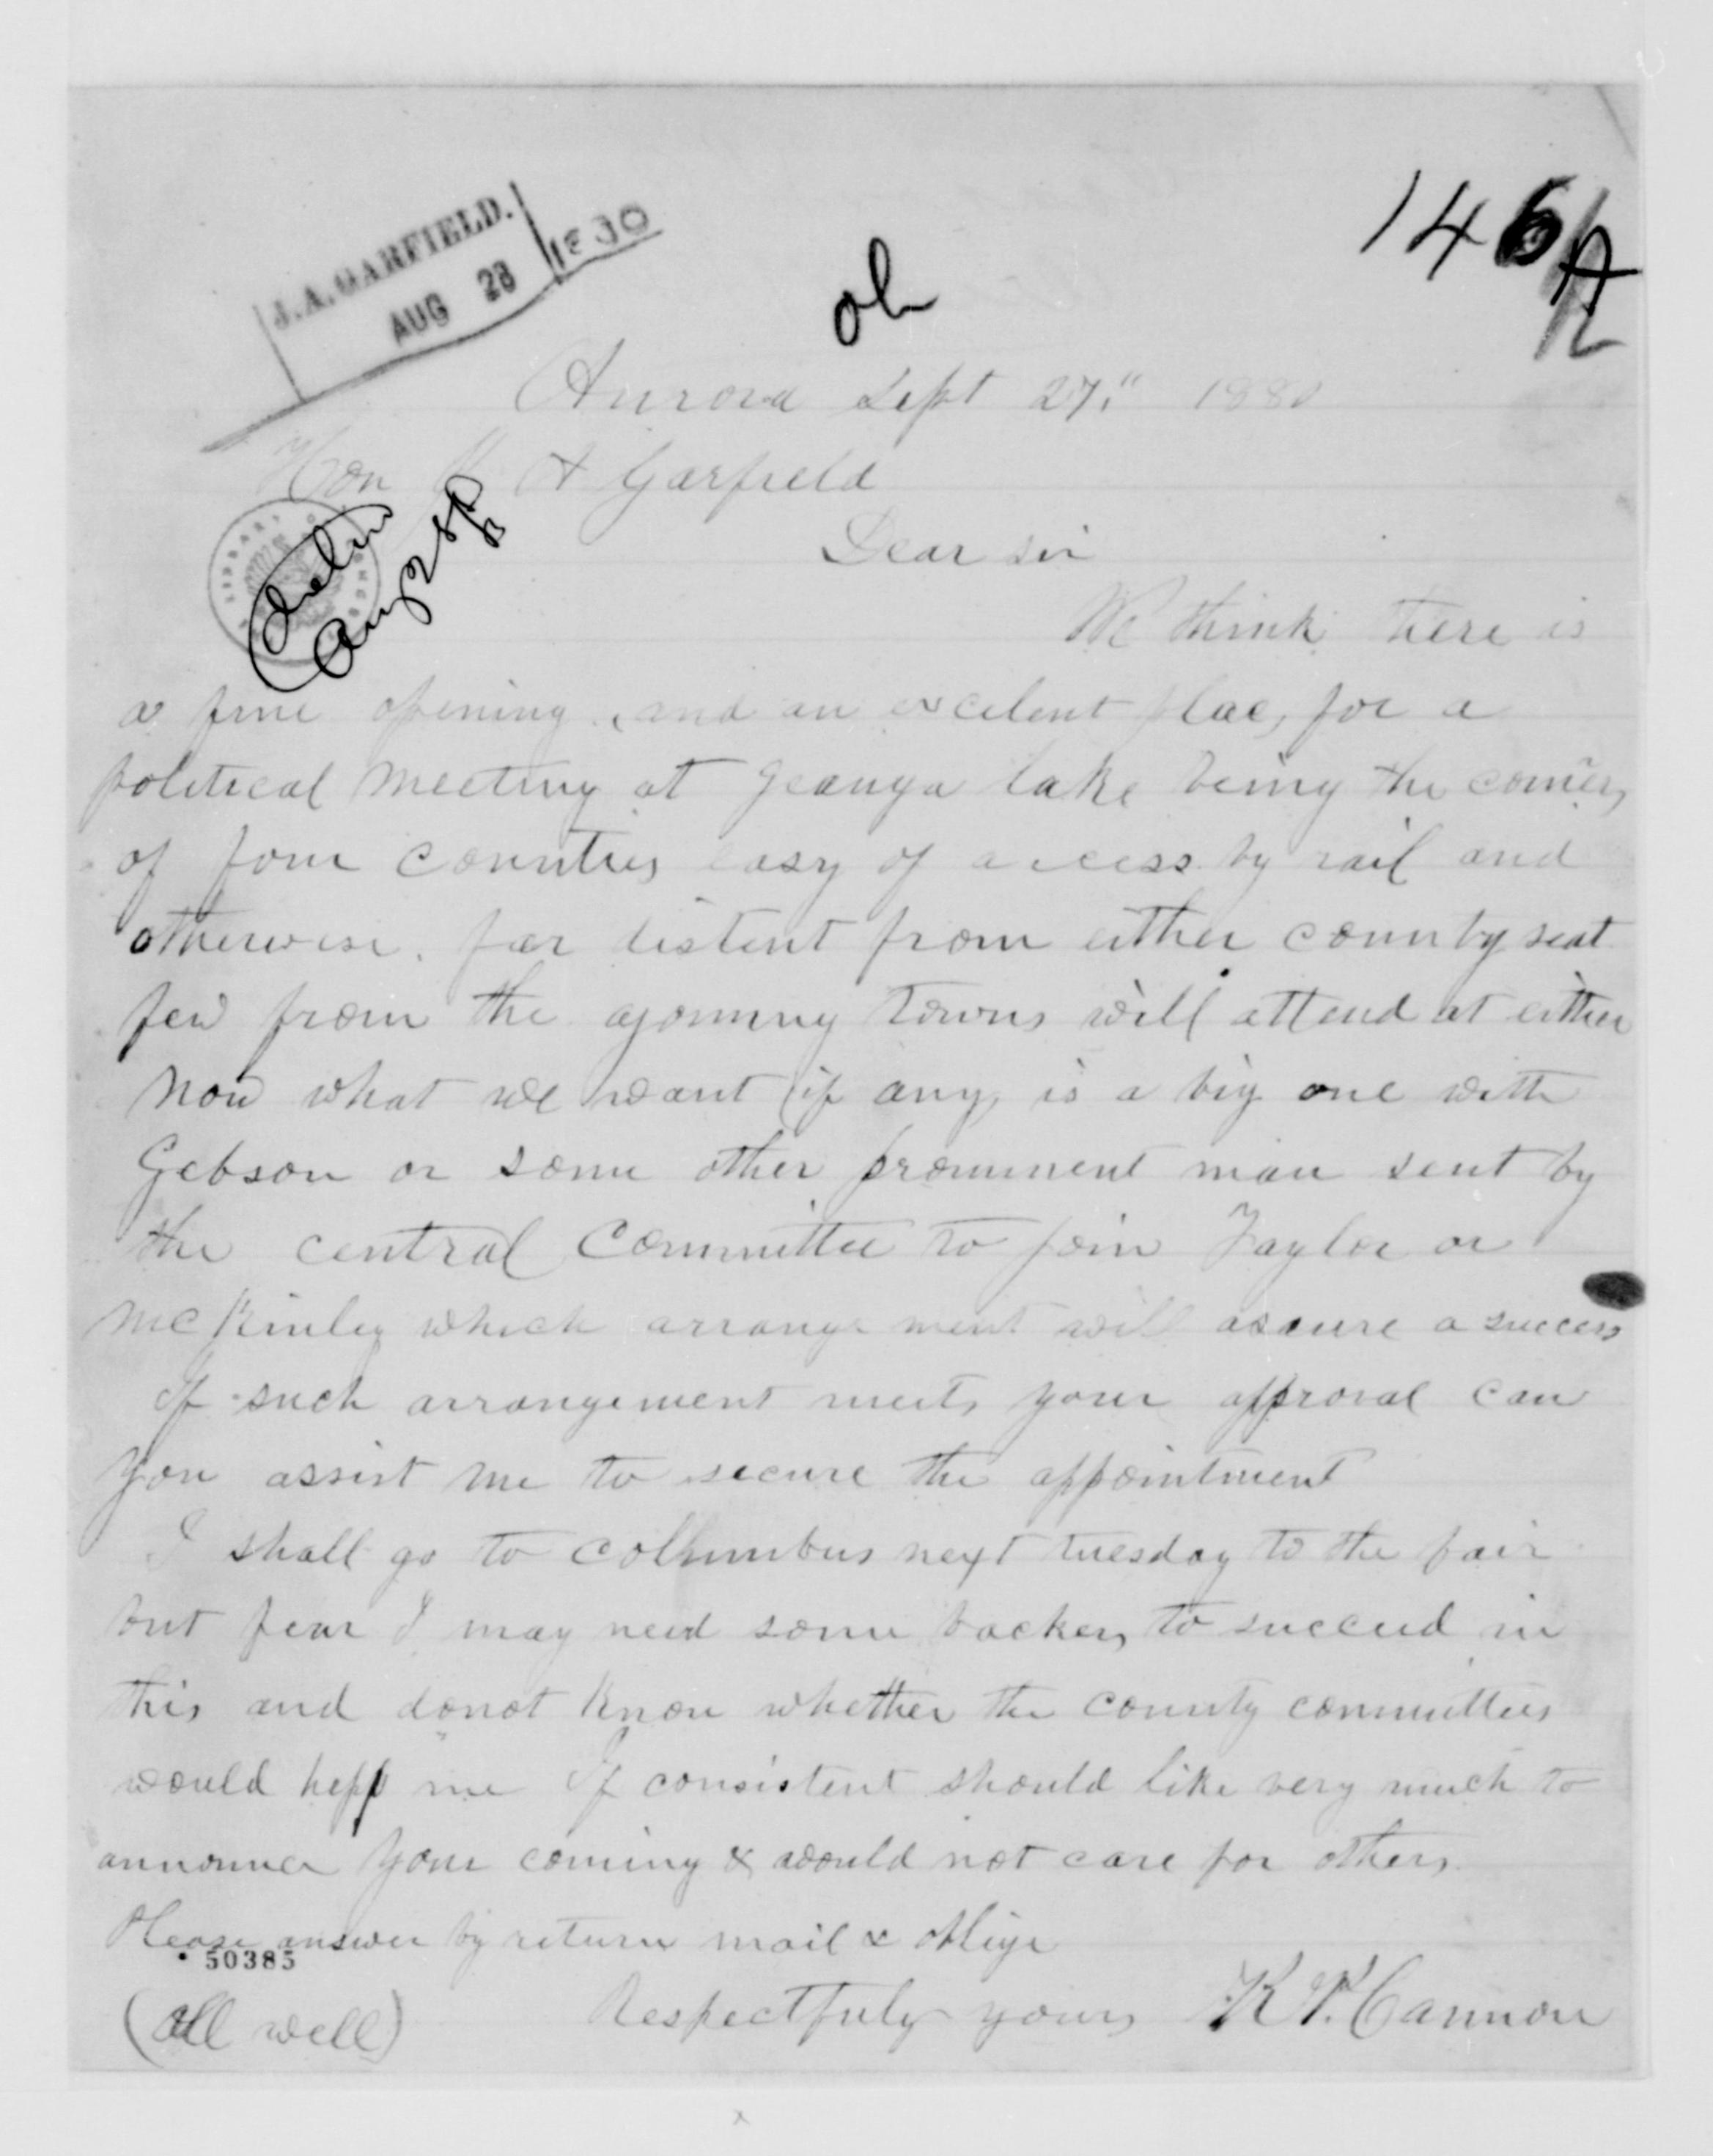 J. A. GARFIELD.
AUG 28 1880
146
Oh
Aurora Sept 27." 1880
Hon J A Garfield
Aug 28
Dear sir
We think there is
a fine opening, and an excelent place for a
political meeting at Geauga lake being the corners
of four counties easy of access by rail and
otherwise. far distent from either county seat
few from the ajoining towns will attend at either
Now what we want if any, is a big one with
Gebson or some other promment man sent by
the central Committee to join Taylor or
McKinley which arrangement will assure a success
If such arrangement meets your approval can
you assist me to secure the appointment
I shall go to Collumbus next tuesday to the fair
but fear I may need some backers to succeed in
this and donot know whether the county committees
would help me If consistent should like very much to
announce your coming & would not care for others.
Please answer by return mail & oblige
50385
(all well) Respectfuly yours K. P. Cannon